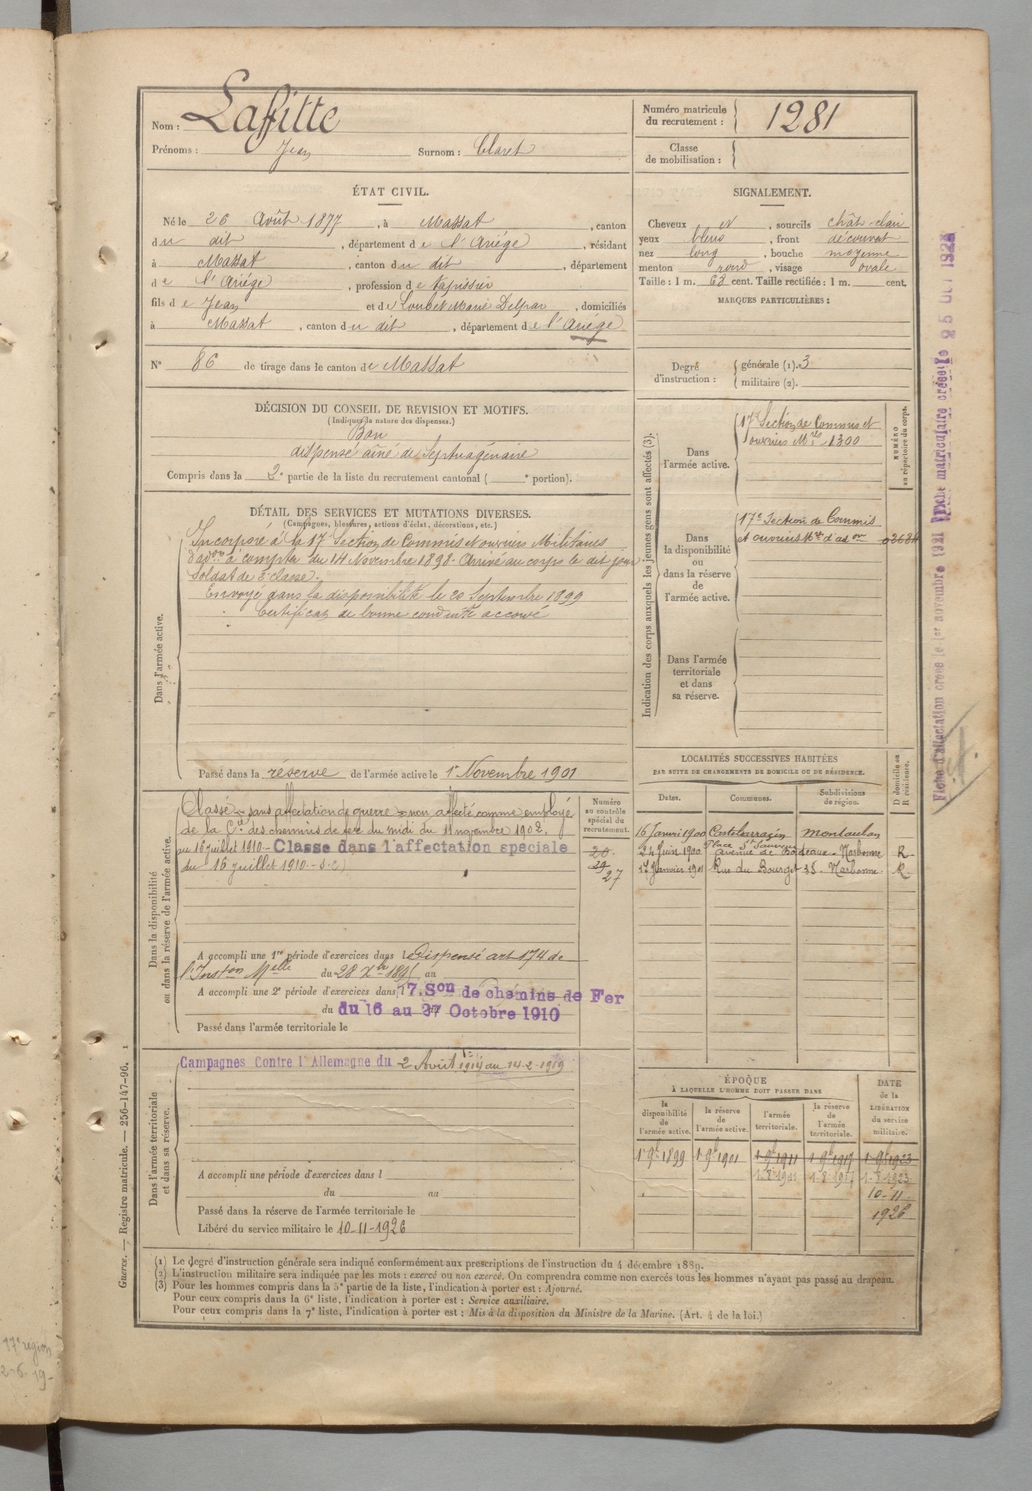 Nom : Laffitte
Prénoms : Jean Surnom : Claret
Numéro matricule du recrutement : 1281
Classe de mobilisation :
ÉTAT CIVIL.
Né le 26 Août 1877, à Massat, canton
du dit, département de l'Ariége, résidant
à Massat, canton du dit, département
de l'Ariége, profession de tapissier
fils de Jean et de Loubet Marie, domiciliés
à Massat, canton du dit, département de l'Ariége
SIGNALEMENT.
Cheveux et, sourcils chât-clair
yeux bleus, front découvert
nez long, bouche moyenne
menton rond, visage ovale
Taille : 1 m. 68 cent. Taille rectifiée : 1 m. cent.
MARQUES PARTICULIÈRES :
N° 86 de tirage dans le canton de Massat
Degré d'instruction : générale (1). 3
militaire (2).
DÉCISION DU CONSEIL DE REVISION ET MOTIFS.
(Indiquer la nature des dispenses.)
Bon
dispensé aîné de Septuagénaire
Compris dans la 2e partie de la liste du recrutement cantonal ( e portion).
DÉTAIL DES SERVICES ET MUTATIONS DIVERSES.
(Campagnes, blessures, actions d'éclat, décorations, etc.)
Dans l'armée active.
Incorporé à la 17e Section de Commis et ouvriers Militaires
d'adon à compter du 14 Novembre 1898. Arrivé au corps le dit jour
Soldat de 2e classe.
Envoyé dans la disponibilité le 20 Septembre 1899
Certificat de bonne conduite accordé
Passé dans la réserve de l'armée active le 1er Novembre 1901
Indication des corps auxquels les jeunes gens sont affectés (3).
NUMÉRO au répertoire du corps.
Dans l'armée active.
17e Section de Commis et
ouvriers Mres 1300
Dans la disponibilité ou dans la réserve de l'armée active.
17e Section de Commis
et ouvriers Mres d'adon
Dans l'armée territoriale et dans sa réserve.
Dans la disponibilité ou dans la réserve de l'armée active.
Classé "sans affectation de guerre" "non affecté comme employé
de la Cie des chemins de fer du midi du 11 novembre 1902.
au 16 juillet 1910- Classe dans l'affectation spéciale
du 16 juillet 1910- S.C)
Numéro au contrôle spécial du recrutement.
20
29
27
A accompli une 1re période d'exercices dans l Dispensé art 174 de
l'Inston Melle du 28 Xbre 189 au
A accompli une 2e période d'exercices dans l 7.Son de chemins de Fer
du du 16 au 27 Octobre 1910
Passé dans l'armée territoriale le
LOCALITÉS SUCCESSIVES HABITÉES
PAR SUITE DE CHANGEMENTS DE DOMICILE OU DE RÉSIDENCE.
Dates. Communes. Subdivisions de région. D domicile ou R résidence.
16 Janvi 1900 Castelsarrazin Montauban
Place St Sauveur
24 Juin 1900 avenue de Bordeaux. Narbonne R
17 Janvier 1901 Rue du Bourget 28. Narbonne R
Dans l'armée territoriale et dans sa réserve.
Campagnes Contre l'Allemagne du 2 Août 1914 au 14-2-1919
A accompli une période d'exercices dans l
du au
Passé dans la réserve de l'armée territoriale le
Libéré du service militaire le 10-11-1926
ÉPOQUE
À LAQUELLE L'HOMME DOIT PASSER DANS
la disponibilité de l'armée active. la réserve de l'armée active. l'armée territoriale. la réserve de l'armée territoriale. DATE de la LIBÉRATION du service militaire.
1er 9bre 1899 1er 9bre 1901 1-9bre 1911 1-9bre 1917 1-9bre 1923
1.8.1911 1.8.1917 1-8-1923
10-11
1926
(1) Le degré d'instruction générale sera indiqué conformément aux prescriptions de l'instruction du 4 décembre 1889.
(2) L'instruction militaire sera indiquée par les mots : exercé ou non exercé. On comprendra comme non exercés tous les hommes n'ayant pas passé au drapeau.
(3) Pour les hommes compris dans la 5e partie de la liste, l'indication à porter est : Ajourné.
Pour ceux compris dans la 6e liste, l'indication à porter est : Service auxiliaire.
Pour ceux compris dans la 7e liste, l'indication à porter est : Mis à la disposition du Ministre de la Marine. (Art. 4 de la loi.)
Guerre. — Registre matricule. — 256-147-96.
Fiche d'affectation créée le 1er novembre 1921 Fiche matriculaire créée le 25 OCT 192
17e région
2-6.19-